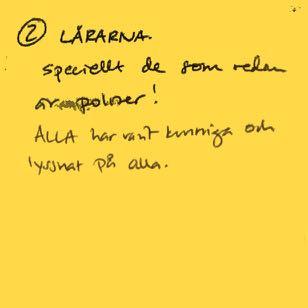 ② LÄRARNA.
speciellt de som redan
är poliser!
ALLA har varit kunniga och
lyssnat på alla.